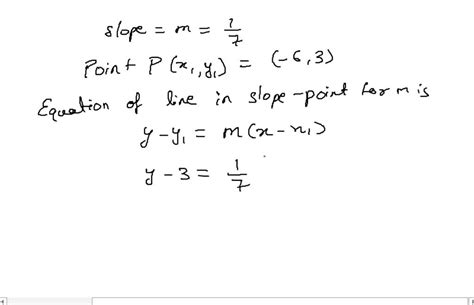 slope = m = 1/7
Point P(x₁,y₁) = (-6,3)
Equation of line in slope-point form is
y - y₁ = m(x - x₁)
y - 3 = 1/7